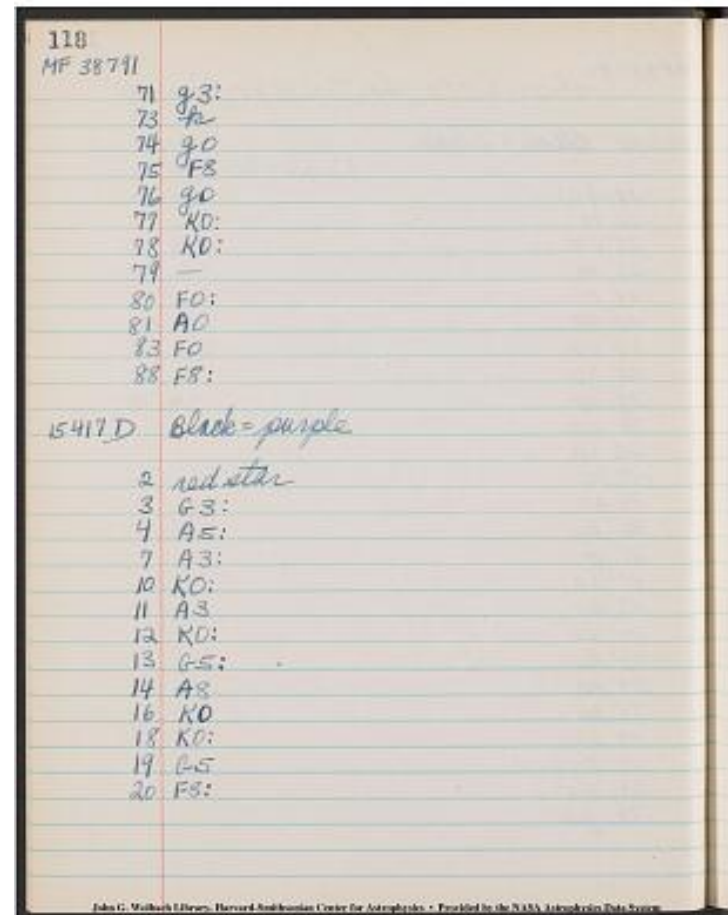 118
MF 38791
71 g3:
73 k
74 g0
75 F8
76 g0
77 K0:
78 K0:
79 —
80 F0:
81 A0
83 F0
88 F8:
15417 D Black = purple
2 red star
3 G3:
4 A5:
7 A3:
10 K0:
11 A3
12 K0:
13 G5:
14 A8
16 K0
18 K0:
19 G5
20 F8:
John G. Wolbach Library, Harvard-Smithsonian Center for Astrophysics • Provided by the NASA Astrophysics Data System